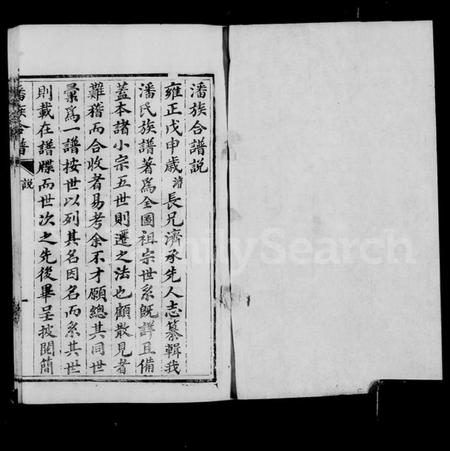 潘族合譜說
雍正戊申歲濬長兄濟承先人志纂輯我
潘氏族譜著爲全圖祖宗世系旣詳且備
蓋本諸小宗五世則遷之法也顧散見者
難稽而合收者易考余不才願總其同世
彙爲一譜按世以列其名因名而系其世
則載在譜牒而世次之先後畢呈披閱簡
潘族合譜
說
FamilySearch